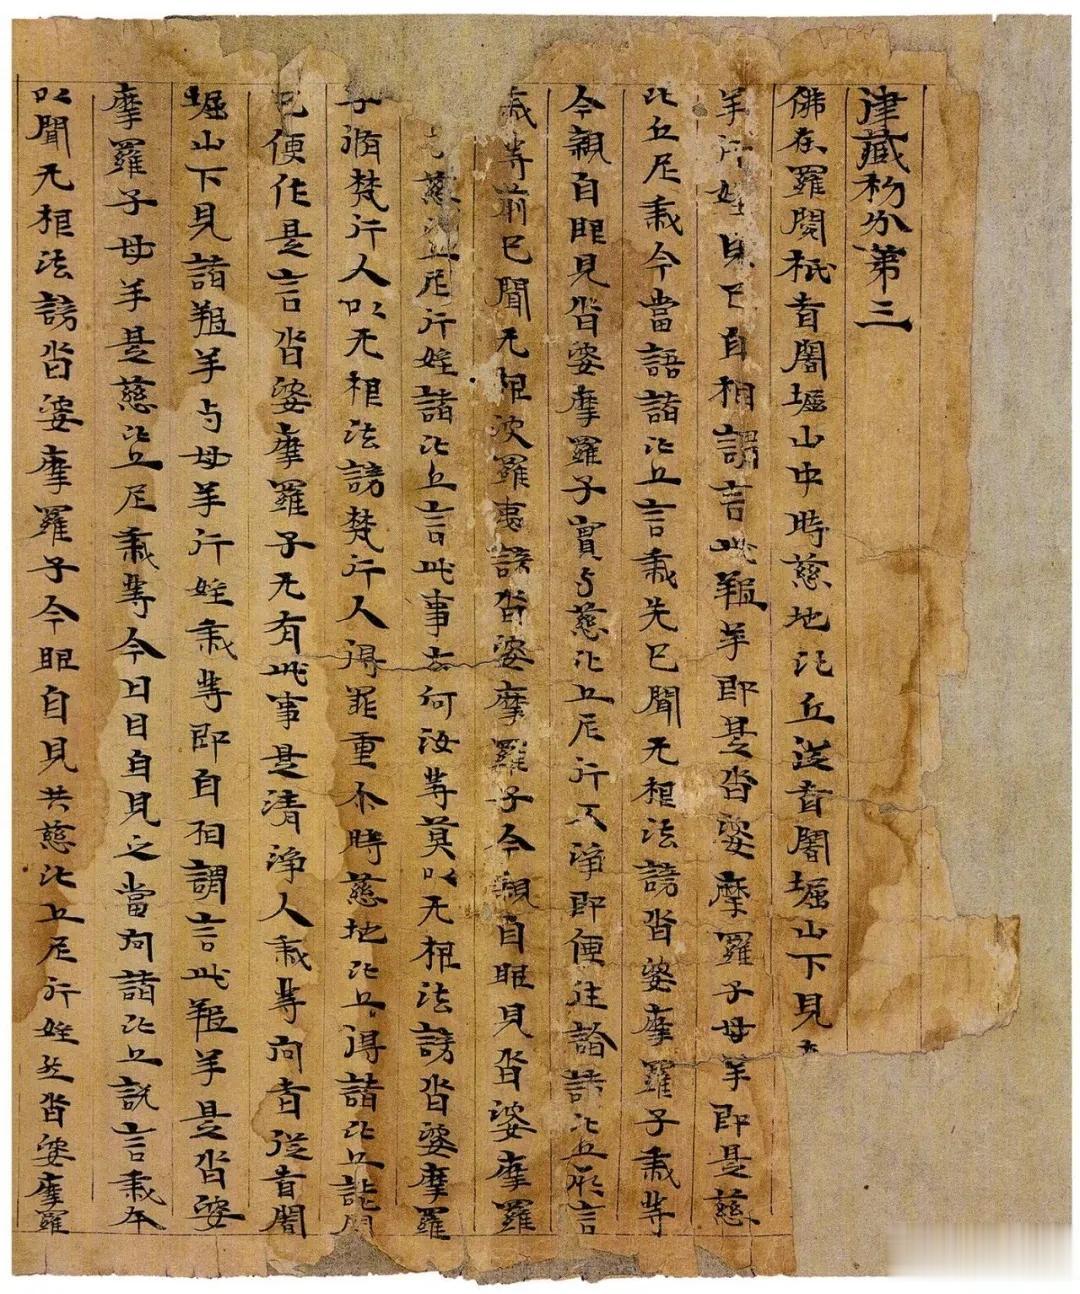 津藏初分第三
佛在羅閱祇耆闍堀山中時慈地比丘從耆闍堀山下見
羊行婬見已自相謂言此羝羊即是沓婆摩羅子母羊即是慈
比丘尼我今當語諸比丘言我先已聞无根法謗沓婆摩羅子我等
今親自眼見沓婆摩羅子實与慈比丘尼行不淨即便往諸比丘所言
我等前已聞无根波羅夷謗沓婆摩羅子今親自眼見沓婆摩羅
慈比丘尼行婬諸比丘言此事云何汝等莫以无根法謗沓婆摩羅
子脩梵行人以无根法謗梵行人得罪重尒時慈地比丘得諸比丘詰問
已便作是言沓婆摩羅子无有此事是清淨人我等向者從耆闍
堀山下見諸羝羊与母羊行婬我等即自相謂言此羝羊是沓婆
摩羅子母羊是慈比丘尼我等今日目自見之當向諸比丘說言我本
以聞无根法謗沓婆摩羅子今眼自見共慈比丘尼行婬然沓婆摩羅